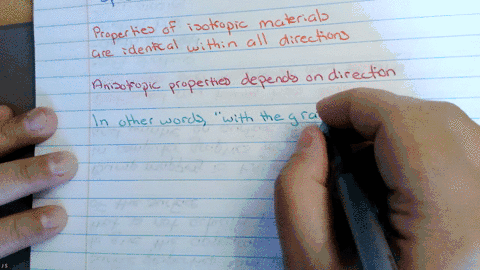 Properties of isotropic materials
are identical within all directions
Anisotropic properties depends on direction
In other words, "with the gra